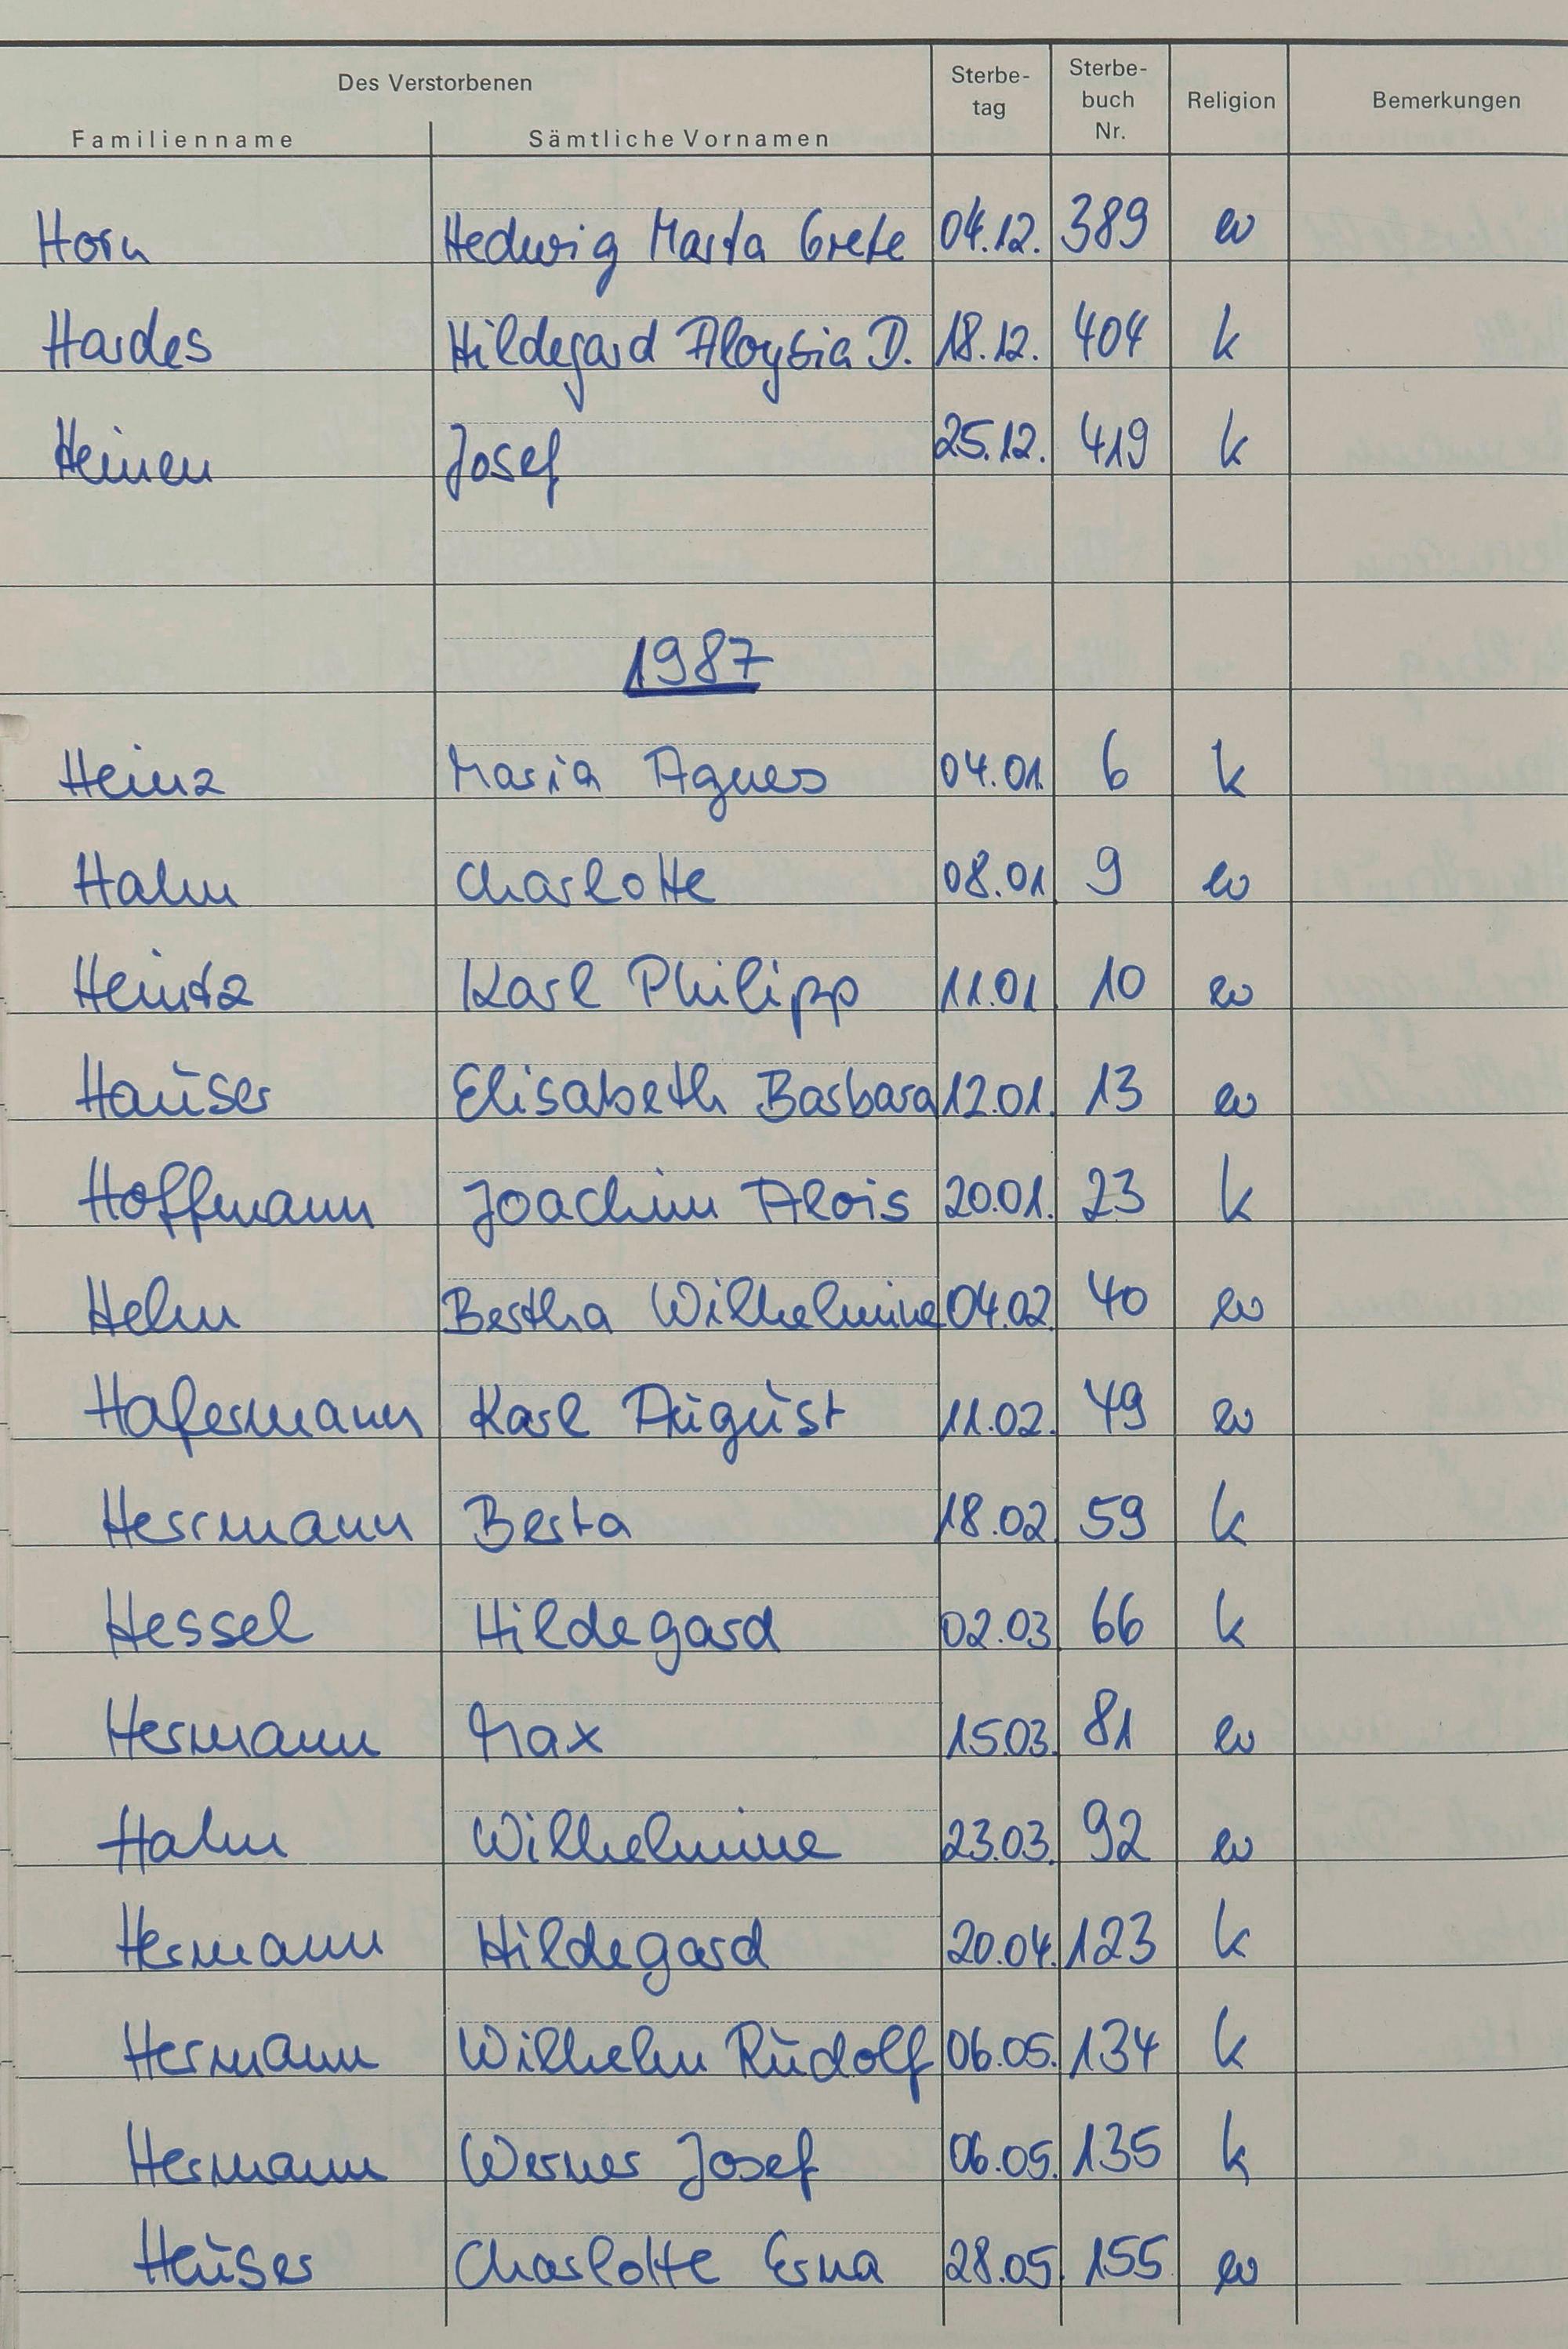 Des Verstorbenen
Familienname Sämtliche Vornamen Sterbe-tag Sterbe-buch Nr. Religion Bemerkungen
Horn Hedwig Marta Grete 04.12. 389 ev
Hardes Hildegard Aloysia D. 18.12. 404 k
Heinen Josef 25.12. 419 k
1987
Heinz Maria Agnes 04.01. 6 k
Hahn Charlotte 08.01 9 ev
Heintz Karl Philipp 11.01 10 ev
Hauser Elisabeth Barbara 12.01. 13 ev
Hoffmann Joachim Alois 20.01. 23 k
Helm Bertha Wilhelmine 04.02. 40 ev
Hafermann Karl August 11.02. 49 ev
Herrmann Berta 18.02. 59 k
Hessel Hildegard 02.03 66 k
Hermann Max 15.03. 81 ev
Hahn Wilhelmine 23.03. 92 ev
Hermann Hildegard 20.04. 123 k
Hermann Wilhelm Rudolf 06.05. 134 k
Hermann Werner Josef 06.05. 135 k
Heuser Charlotte Erna 28.05. 155 ev